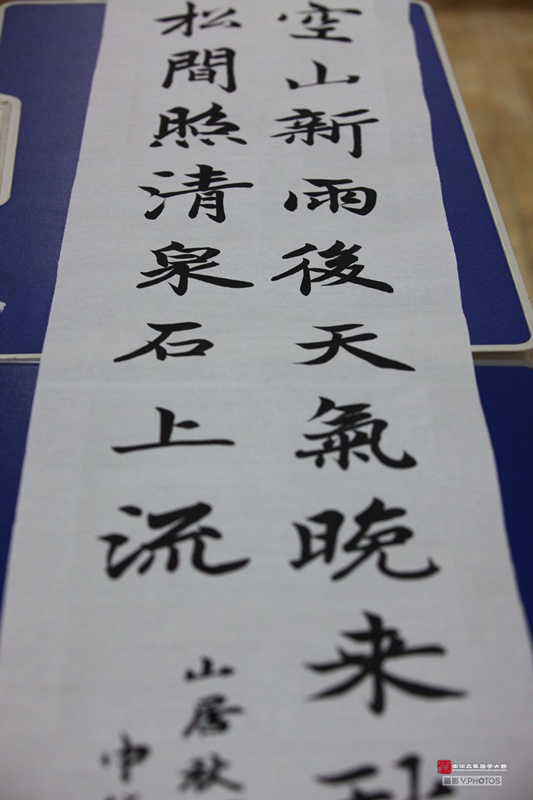 空山新雨後天氣晚来
松間照清泉石上流
山居秋
中
中华之星国学大赛
攝影 V.PHOTOS